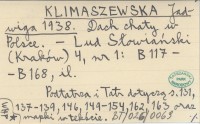 KLIMASZEWSKA Jad-
wiga 1938. Dach chaty w
Polsce. – Lud Słowiański
(Kraków) 4, nr 1: B 117 –
– B 168, il.
Podtatrza i Tatr dotyczą s. 131,
137-139, 146, 149-154, 162, 163 oraz
mapki w tekście. BT/026/0069